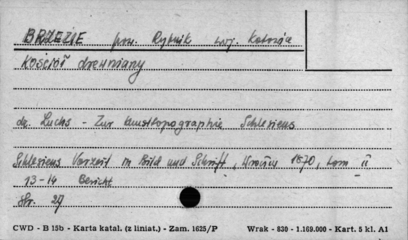 BRZEZIE pow. Rybnik woj. Katowice
Kościół drewniany
dr. Luchs - Zur Kunsttopographie Schlesiens
Schlesiens Vorzeit in Bild und Schrift, Wrocław 1870, tom II
13-14 Bericht
Str. 29
CWD - B 15b - Karta katal. (z liniat.) - Zam. 1625/P Wrak - 830 - 1.169.000 - Kart. 5 kl. A1